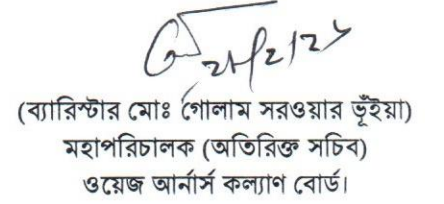 (ব্যারিস্টার মোঃ গোলাম সরওয়ার ভূঁইয়া)
মহাপরিচালক (অতিরিক্ত সচিব)
ওয়েজ আর্নার্স কল্যাণ বোর্ড।